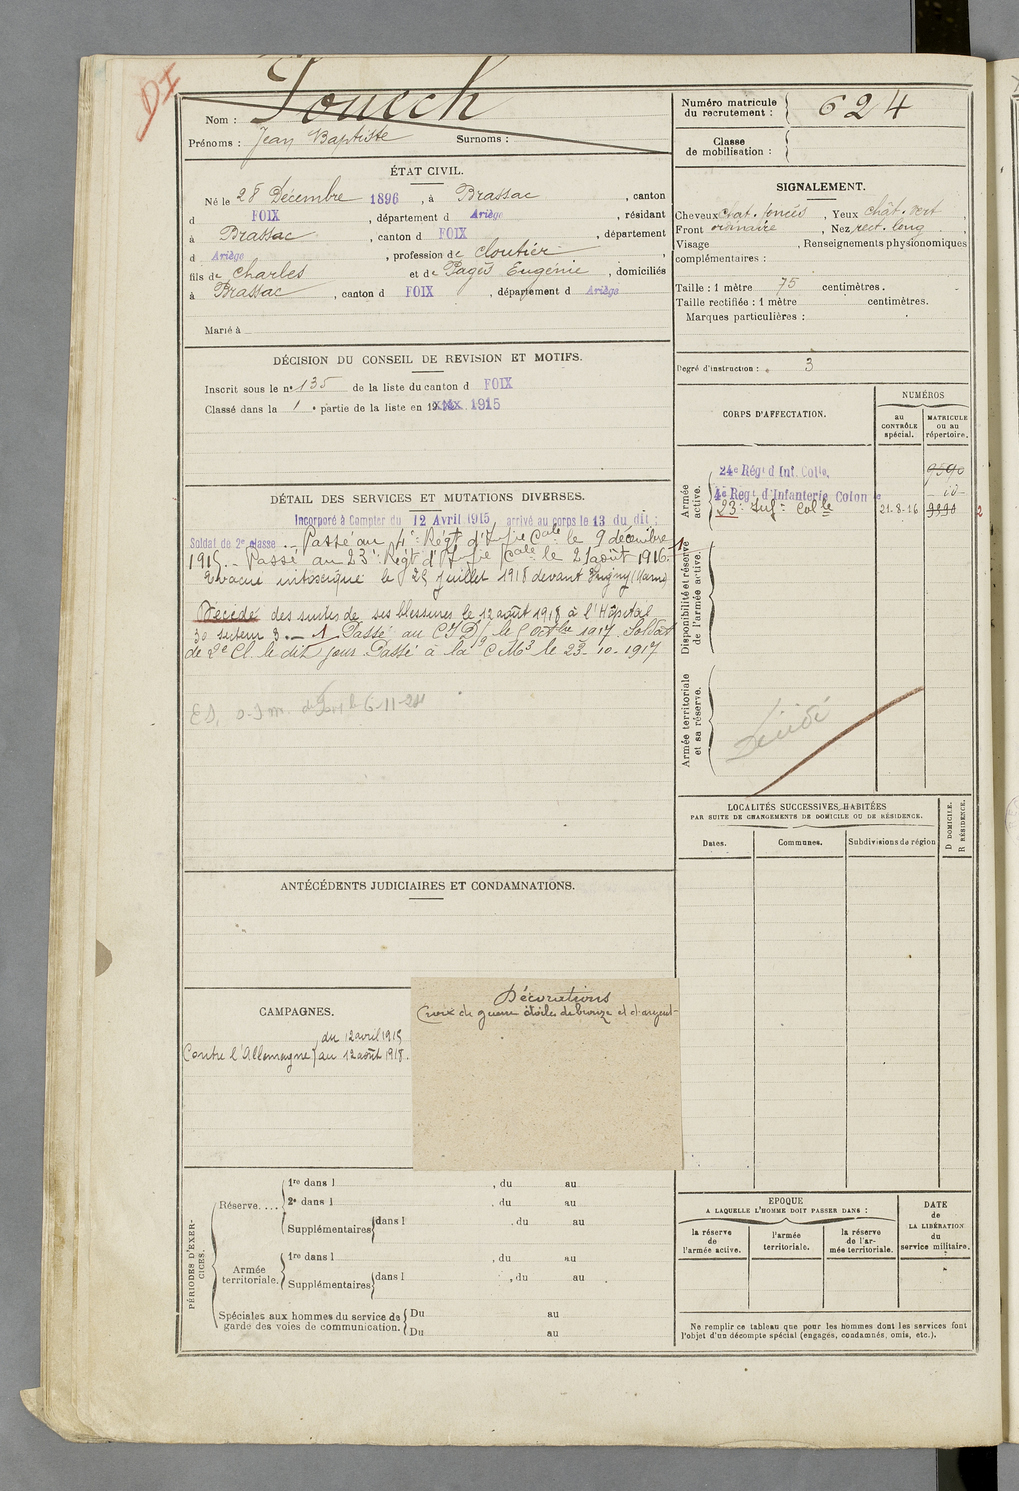 DI
Nom : Fouech
Prénoms : Jean Baptiste Surnoms :
ÉTAT CIVIL.
Né le 28 Décembre 1896, à Brassac, canton
d FOIX, département d Ariège, résidant
à Brassac, canton d FOIX, département
d Ariège, profession de cloutier,
fils de Charles et de Pagès Eugénie, domiciliés
à Brassac, canton d FOIX, département d Ariège
Marié à
DÉCISION DU CONSEIL DE REVISION ET MOTIFS.
Inscrit sous le n° 135 de la liste du canton d FOIX
Classé dans la 1e partie de la liste en 1915
DÉTAIL DES SERVICES ET MUTATIONS DIVERSES.
Incorporé à Compter du 12 Avril 1915, arrivé au corps le 13 du dit ;
Soldat de 2e classe. Passé au 4e Régt d'Infie Cale le 9 décembre
1915. Passé au 23e Régt d'Infie Cale le 21 août 1916. 1
Evacué intoxiqué le 25 juillet 1918 devant (Marne)
Décédé des suites de ses blessures le 12 août 1918 à l'Hôpital
30 secteur 3. — 1 Passé au CID le octbre 1917 Soldat
de 2e Cl. le dit jour Passé à la CM3 le 23-10-1917
6-11-24
ANTÉCÉDENTS JUDICIAIRES ET CONDAMNATIONS.
CAMPAGNES.
Contre l'Allemagne { du 12 avril 1915
au 12 août 1918.
Décorations
Croix de guerre étoiles de bronze et d'argent
PÉRIODES D'EXERCICES.
Réserve....
1re dans l , du au
2e dans l , du au
Supplémentaires { dans l , du au
Armée territoriale.
1re dans l , du au
Supplémentaires { dans l , du au
Spéciales aux hommes du service de garde des voies de communication. { Du au
Du au
Numéro matricule du recrutement : 624
Classe de mobilisation :
SIGNALEMENT.
Cheveux chat. foncés, Yeux chât. vert,
Front ordinaire, Nez rect. long,
Visage , Renseignements physionomiques
complémentaires :
Taille : 1 mètre 75 centimètres.
Taille rectifiée : 1 mètre centimètres.
Marques particulières :
Degré d'instruction : 3
CORPS D'AFFECTATION.
NUMÉROS
au CONTRÔLE spécial.
MATRICULE ou au répertoire.
Armée active.
24e Régt d'Inf. Colle.
4e Regt. d'Infanterie Colon le
23e Infie Colle 21-8-16
2
Disponibilité et réserve de l'armée active.
Armée territoriale et sa réserve.
Décédé
LOCALITÉS SUCCESSIVES HABITÉES
PAR SUITE DE CHANGEMENTS DE DOMICILE OU DE RÉSIDENCE.
Dates. Communes. Subdivisions de région
D DOMICILE.
R RÉSIDENCE.
EPOQUE
A LAQUELLE L'HOMME DOIT PASSER DANS :
la réserve de l'armée active.
l'armée territoriale.
la réserve de l'armée territoriale.
DATE de LA LIBÉRATION du service militaire.
Ne remplir ce tableau que pour les hommes dont les services font
l'objet d'un décompte spécial (engagés, condamnés, omis, etc.).